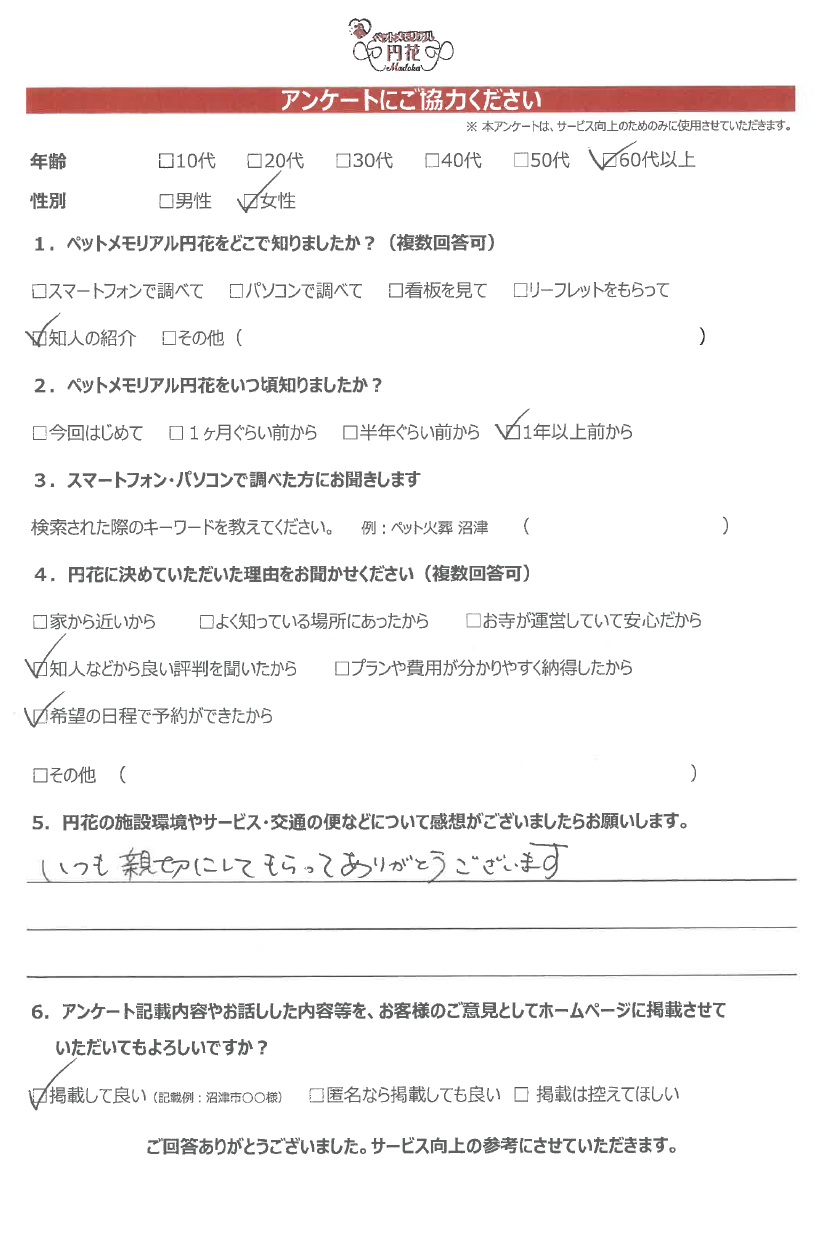 ペットメモリアル
円花
Madoka
アンケートにご協力ください
※ 本アンケートは、サービス向上のためのみに使用させていただきます。
年齢 □10代 □20代 □30代 □40代 □50代 ☑60代以上
性別 □男性 ☑女性
１．ペットメモリアル円花をどこで知りましたか？（複数回答可）
□スマートフォンで調べて □パソコンで調べて □看板を見て □リーフレットをもらって
☑知人の紹介 □その他（ ）
２．ペットメモリアル円花をいつ頃知りましたか？
□今回はじめて □１ヶ月ぐらい前から □半年ぐらい前から ☑1年以上前から
３．スマートフォン・パソコンで調べた方にお聞きします
検索された際のキーワードを教えてください。 例：ペット火葬 沼津 （ ）
４．円花に決めていただいた理由をお聞かせください（複数回答可）
□家から近いから □よく知っている場所にあったから □お寺が運営していて安心だから
☑知人などから良い評判を聞いたから □プランや費用が分かりやすく納得したから
☑希望の日程で予約ができたから
□その他 （ ）
5．円花の施設環境やサービス・交通の便などについて感想がございましたらお願いします。
いつも親切にしてもらってありがとうございます
6．アンケート記載内容やお話しした内容等を、お客様のご意見としてホームページに掲載させて
いただいてもよろしいですか？
☑掲載して良い（記載例：沼津市〇〇様） □匿名なら掲載しても良い □ 掲載は控えてほしい
ご回答ありがとうございました。サービス向上の参考にさせていただきます。